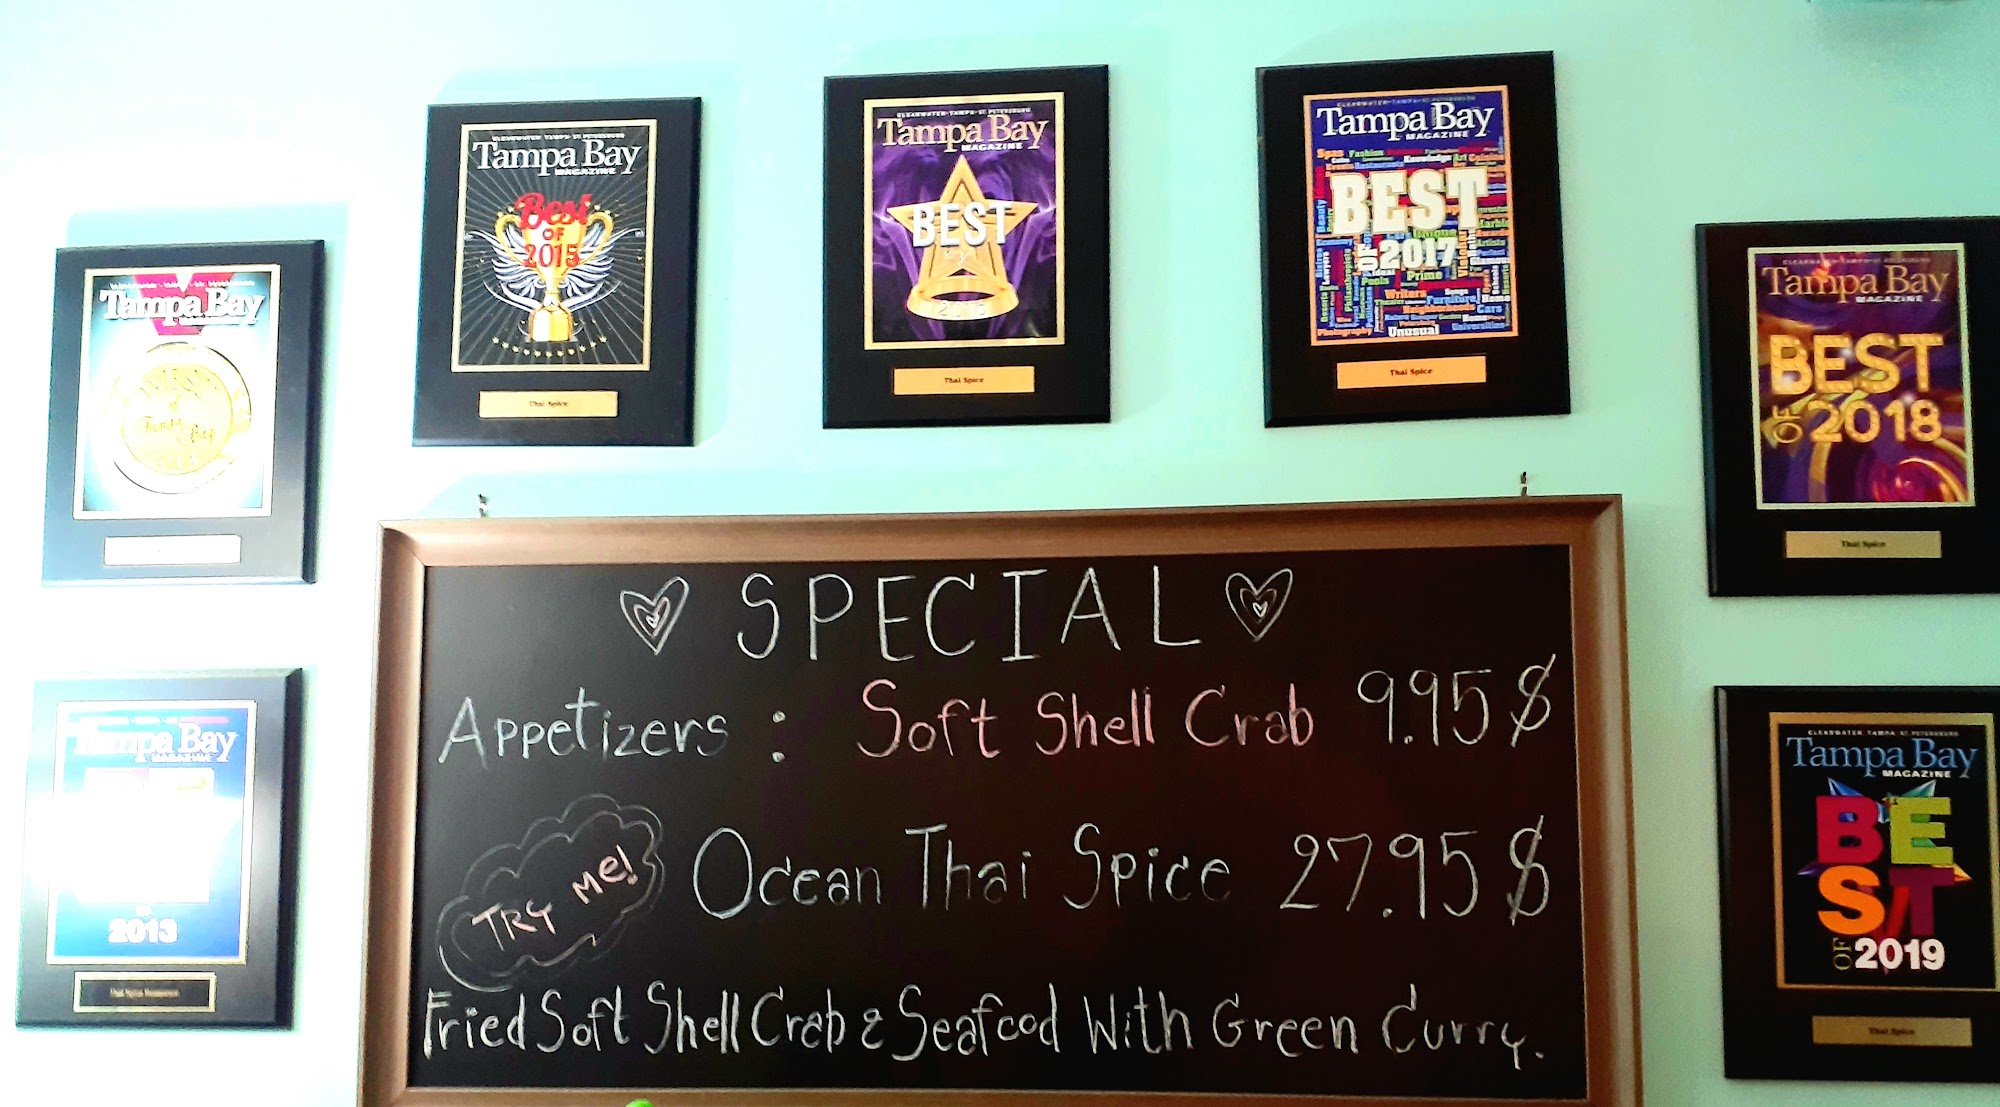 Tampa Bay
CLEARWATER · TAMPA · ST. PETERSBURG
Tampa Bay
MAGAZINE
Best
OF
2015
Thai Spice
CLEARWATER · TAMPA · ST. PETERSBURG
Tampa Bay
MAGAZINE
BEST
2016
Thai Spice
CLEARWATER · TAMPA · ST. PETERSBURG
Tampa Bay
MAGAZINE
Spas Fashion
Knowledge Art Cuisine
BEST
Unique
OF 2017
Prime
Writers
Furniture
Neighborhoods Cars
Photography Unusual Universities
Thai Spice
CLEARWATER · TAMPA · ST. PETERSBURG
Tampa Bay
MAGAZINE
BEST
OF 2018
Thai Spice
Tampa Bay
MAGAZINE
2013
CLEARWATER · TAMPA · ST. PETERSBURG
Tampa Bay
MAGAZINE
BE
ST
OF 2019
Thai Spice
SPECIAL
Appetizers : Soft Shell Crab 9.95 $
TRY ME!
Ocean Thai Spice 27.95 $
Fried Soft Shell Crab & Seafood With Green Curry.